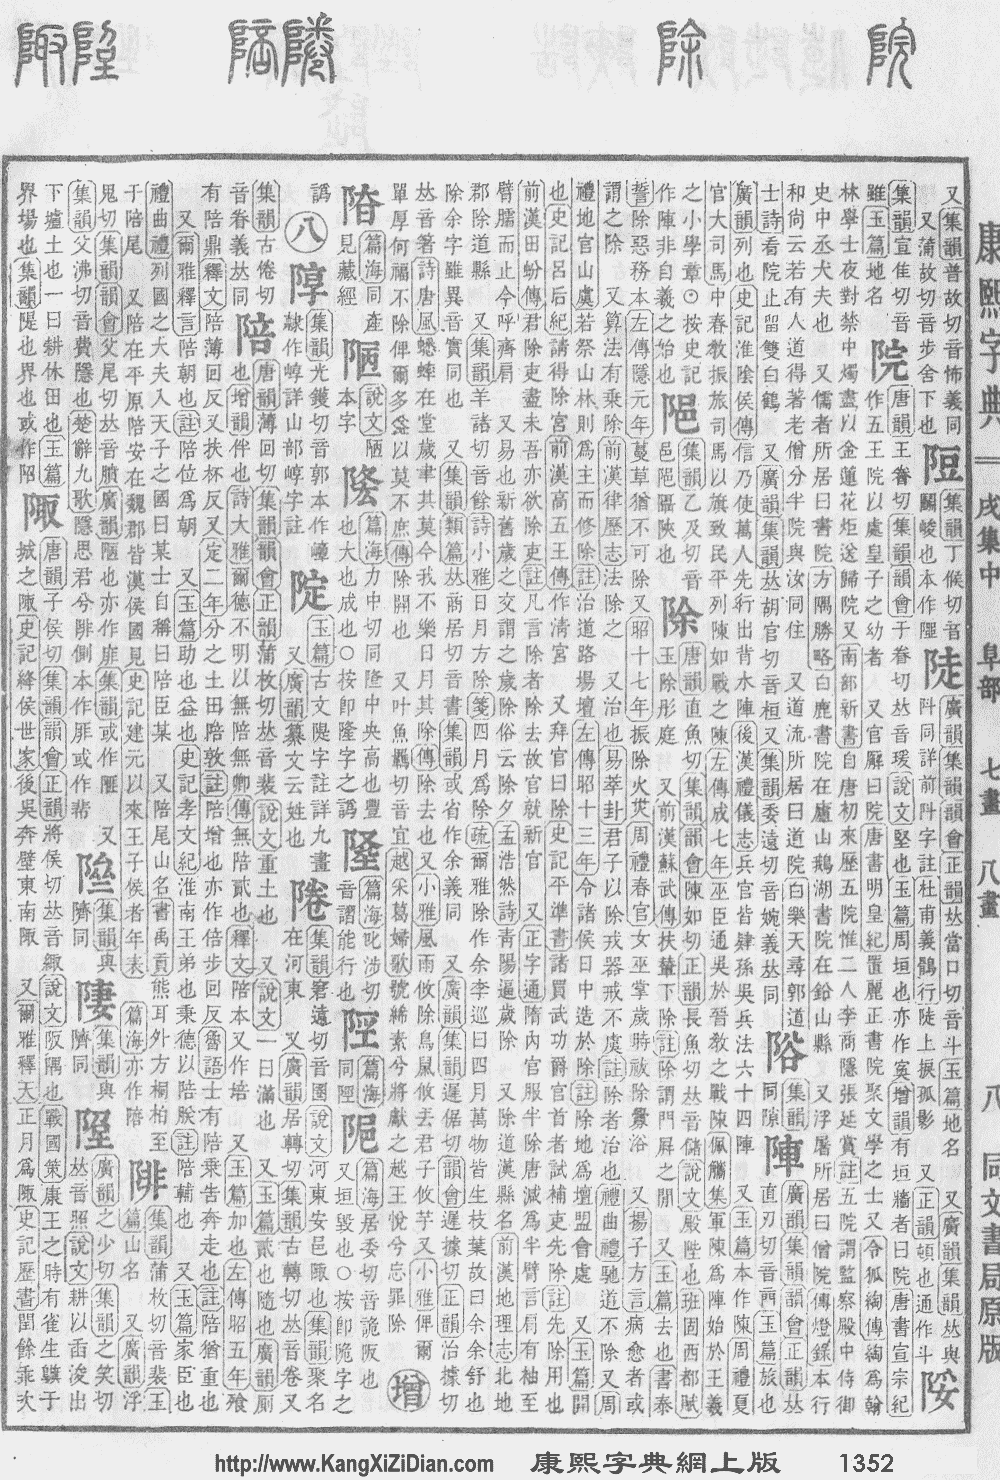 康熙字典 戌集中 阜部 七畫 八畫 八 同文書局原版
又集韻普故切音怖義同
又蒲故切音步舍下也
集韻丁候切音
陡 廣韻集韻韻會正韻𠀤當口切音斗玉篇地名 又廣韻集韻𠀤與
阧同詳前阧字註杜甫義鶻行陡上捩孤影 又正韻頓也通作斗
集韻宣隹切音
雖玉篇地名
院 唐韻王眷切集韻韻會于眷切𠀤音瑗說文堅也玉篇周垣也亦作寏增韻有垣牆者曰院唐書宣宗紀
作五王院以處皇子之幼者 又官廨曰院唐書明皇紀置麗正書院聚文學之士又令狐綯傳綯爲翰
林學士夜對禁中燭盡以金蓮花炬送歸院又南部新書自唐初來歷五院惟二人李商隱張延賞註五院謂監察殿中侍御
史中丞大夫也 又儒者所居曰書院方隅勝略白鹿書院在廬山鵝湖書院在鉛山縣 又浮屠所居曰僧院傳燈錄本行
和尚云若有人道得著老僧分半院與汝同住 又道流所居曰道院白樂天尋郭道
士詩看院止留雙白鶴 又廣韻集韻𠀤胡官切音桓又集韻委遠切音婉義𠀤同
陣 廣韻集韻韻會正韻𠀤
直刃切音𨳌玉篇旅也
廣韻列也史記淮陰侯傳信乃使萬人先行出背水陣後漢禮儀志兵官皆肄孫吳兵法六十四陣 又玉篇本作陳周禮夏
官大司馬中春教振旅司馬以旗致民平列陳如戰之陳左傳成七年巫臣通吳於晉教之戰陳佩觿集軍陳爲陣始於王義
之小學章⊙按史記
作陣非自義之始也
除 唐韻直魚切集韻韻會陳如切正韻長魚切𠀤音儲說文殿陛也班固西都賦
玉除彤庭 又前漢蘇武傳扶輦下除註除謂門屛之閒 又玉篇去也書泰
誓除惡務本左傳隱元年蔓草猶不可除又昭十七年振除火災周禮春官女巫掌歲時祓除釁浴 又揚子方言病愈者或
謂之除 又算法有乘除前漢律歷志法除之 又治也易萃卦君子以除戎器戒不虞註除者治也禮曲禮馳道不除又周
禮地官山虞若祭山林則爲主而修除註治道路場壇左傳昭十三年令諸侯日中造於除註除地爲壇盟會處 又玉篇開
也史記呂后紀請得除宮前漢高五王傳作淸宮 又拜官曰除史記平準書諸買武功爵官首者試補吏先除註先除用也
前漢田蚡傳君除吏盡未吾亦欲除吏註凡言除者除去故官就新官 又正字通隋內官服半除唐減爲半臂肩有袖至
臂臑而止今呼齊肩 又易也新舊歲之交謂之歲除俗云除夕孟浩然詩靑陽逼歲除 又除道漢縣名前漢地理志北地
郡除道縣 又集韻羊諸切音餘詩小雅日月方除箋四月爲除疏爾雅除作余李巡曰四月萬物皆生枝葉故曰余余舒也
除余字雖異音實同也 又集韻類篇𠀤商居切音書集韻或省作余義同 又廣韻集韻遲倨切韻會遲據切正韻治據切
𠀤音箸詩唐風蟋蟀在堂歲聿其莫今我不樂日月其除傳除去也又小雅風雨攸除鳥鼠攸去君子攸芋又小雅俾爾
單厚何福不除俾爾多益以莫不庶傳除開也 又叶魚羈切音宜越采葛婦歌號絺素兮將獻之越王悅兮忘罪除
增
篇海同產
見藏經
陋 說文陋
本字
篇海力中切同隆中央高也豐
也大也成也○按卽隆字之譌
篇海叱涉切
音謂能行也
篇海
同陘
篇海居委切音詭阪也
又垣毀也○按卽陒字之
譌
八
集韻光鑊切音郭本作㟫
隷作崞詳山部崞字註
玉篇古文隄字註詳九畫
又廣韻纂文云姓也
集韻窘遠切音圈說文河東安邑陬也集韻聚名
在河東 又廣韻居轉切集韻古轉切𠀤音卷又
集韻古倦切
音眷義𠀤同
陪 唐韻薄回切集韻韻會正韻蒲枚切𠀤音裴說文重土也 又說文一曰滿也 又玉篇貳也隨也廣韻廁
也增韻伴也詩大雅爾德不明以無陪無卿傳無陪貳也釋文陪本又作培 又玉篇加也左傳昭五年飧
有陪鼎釋文陪薄回反又扶杯反又定二年分之土田陪敦註陪增也亦作倍步回反魯語士有陪乘告奔走也註陪猶重也
又爾雅釋言陪朝也註陪位爲朝 又玉篇助也益也史記孝文紀淮南王弟也秉德以陪朕註陪輔也 又玉篇家臣也
禮曲禮列國之大夫入天子之國曰某士自稱曰陪臣某 又陪尾山名書禹貢熊耳外方桐柏至
于陪尾 又陪在平原陪安在魏郡皆漢侯國見史記建元以來王子侯者年表 篇海亦作陪
陫 集韻蒲枚切音裴玉
篇山名 又廣韻浮
鬼切集韻韻會父尾切𠀤音膹廣韻陋也亦作厞集韻或作䨽 又
集韻父沸切音費隱也楚辭九歌隱思君兮陫側本作厞或作棐
集韻與
隮同
集韻與
隮同
廣韻之少切集韻之笑切
𠀤音照說文耕以臿浚出
下壚土也一曰耕休田也玉篇
界埸也集韻隄也界也或作𨹸
陬 唐韻子侯切集韻韻會正韻將侯切𠀤音緅說文阪隅也戰國策康王之時有雀生鸇于
城之陬史記絳侯世家後吳奔壁東南陬 又爾雅釋天正月爲陬史記歷書閏餘乖次
http://www.KangXiZiDian.com 康熙字典網上版 1352